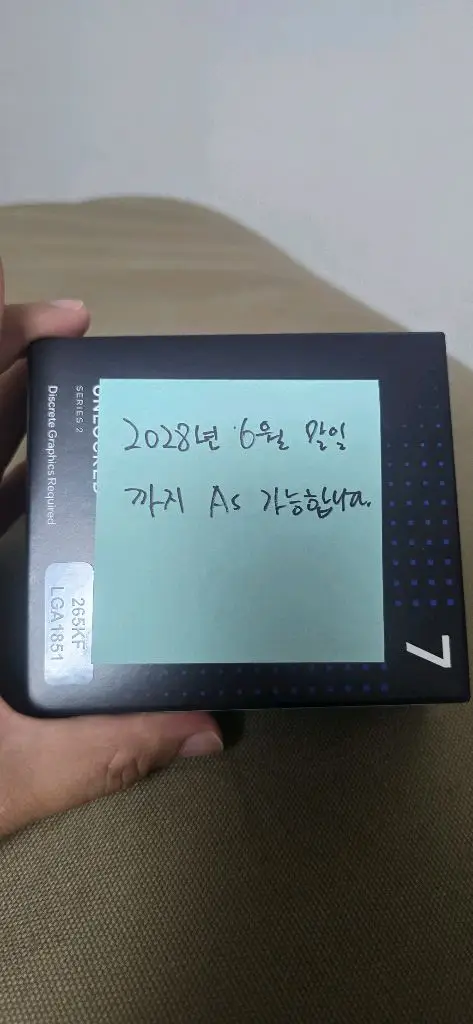 2028년 6월 말일
까지 As 가능합니다.
UNLOCKED
SERIES 2
Discrete Graphics Required
265KF
LGA1851
7